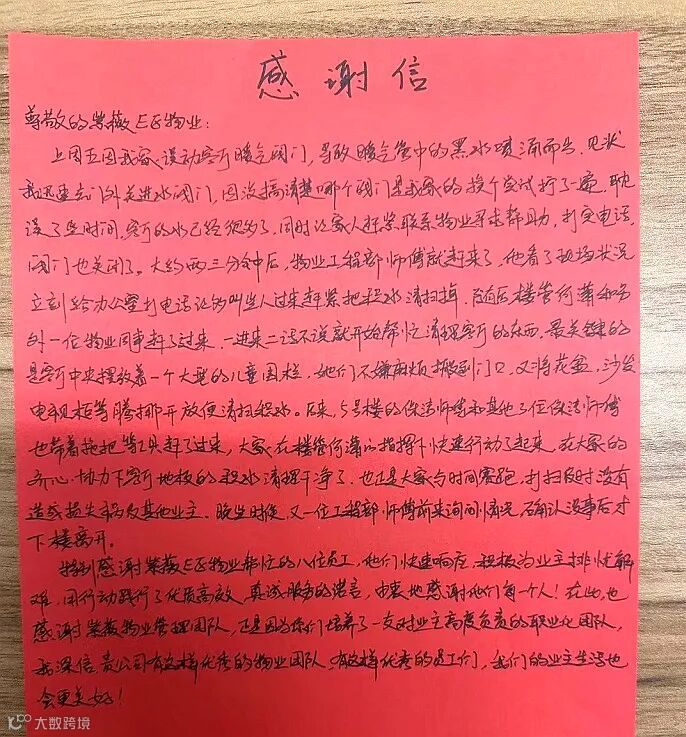 感谢信
尊敬的紫薇E区物业：
上周五因我家误动客厅暖气阀门，导致暖气管中的黑水喷涌而出，见状
我迅速去门外关进水阀门，因没搞清楚哪个阀门是我家的挨个尝试拧了一遍，耽
误了些时间，客厅的水已经很多了，同时让家人赶紧联系物业寻求帮助，打完电话，
阀门也关闭了。大约两三分钟后，物业工程部师傅就赶来了，他看了现场状况
立刻给办公室打电话让多叫些人过来赶紧把积水清扫掉，随后楼管何萧和另
外一位物业同事赶了过来，一进来二话不说就开始帮忙清理客厅的东西，最关键的
是客厅中央摆放着一个大型的儿童围栏，她们不嫌麻烦搬到门口，又将花盆，沙发
电视柜等腾挪开放便清扫积水。后来，5号楼的保洁师傅和其他3位保洁师傅
也带着拖把等工具赶了过来，大家在楼管何萧的指挥下快速行动了起来，在大家的
齐心协力下客厅地板的积水清理干净了，也正是大家与时间赛跑，打扫及时没有
造成损失祸及其他业主。晚些时候，又一位工程部师傅前来询问情况，确认没事后才
下楼离开。
特别感谢紫薇E区物业帮忙的八位员工，他们快速响应，积极为业主排忧解
难，用行动践行了优质高效，真诚服务的诺言，由衷地感谢他们每一个人！在此，也
感谢紫薇物业管理团队，正是因为你们培养了一支对业主高度负责的职业化团队，
我深信贵公司有这样优秀的物业团队，有这样优秀的员工们，我们的业主生活也
会更美好！
大数跨境